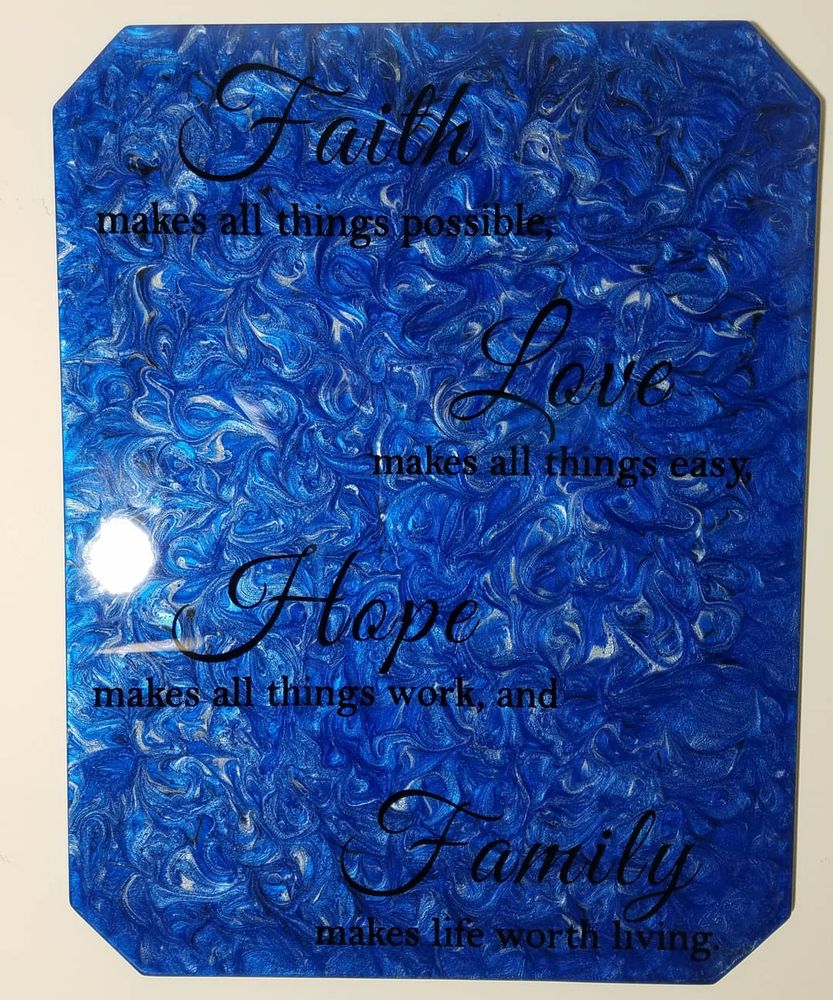 Faith
makes all things possible,
Love
makes all things easy,
Hope
makes all things work, and
Family
makes life worth living.